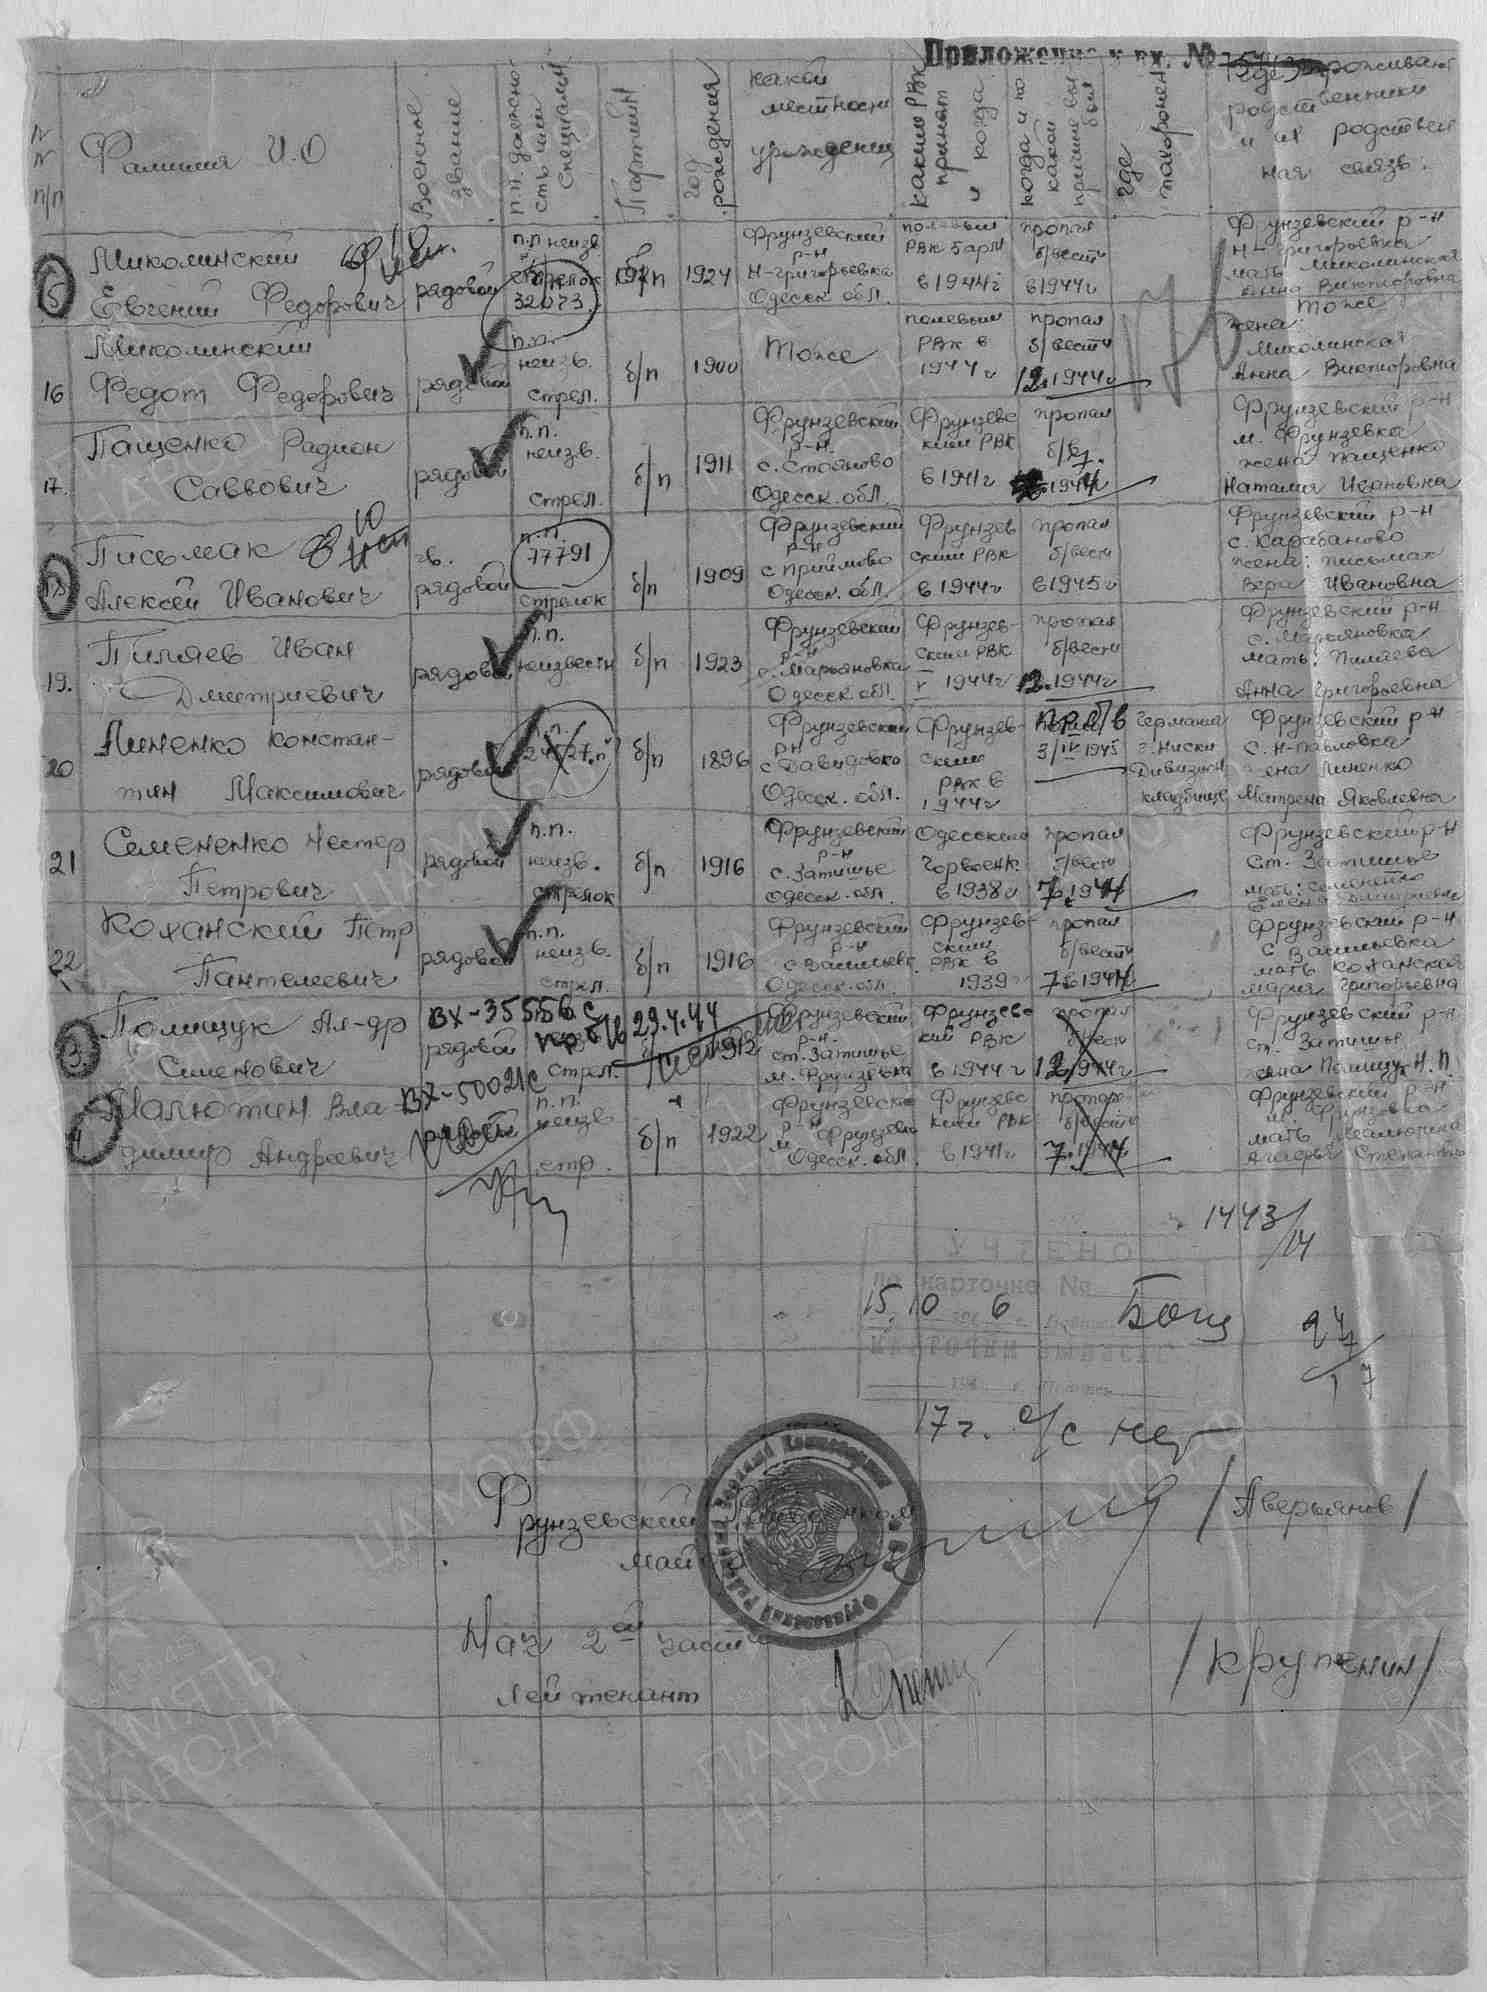 Приложение к вх. №
N N п/п
Фамилия И.О
Военное звание
п.п. должность или специальн.
Партийн
год рождения
какой местности урожденец
каким РВК принят и когда
когда и по какой причине выбыл
где похоронен
где проживают родственники и их родственная связь:
5
Миколинский
Евгений Федорович
рядовой
п.п неизв
стрелок
32073.
б/п
1924
Фрунзевский
р-н
Н-григорьевка
Одесск. обл.
полевым
РВК
в 1944г
пропал
б/вести
в 1944г
Фрунзевский р-н
Н-григорьевка
мать Миколинская
Анна Викторовна
16
Миколинский
Федот Федорович
рядовой
п.п.
неизв.
стрел.
б/п
1900
Тоже
полевым
РВК в
1944г
пропал
б/вести
12.1944г
Тоже
жена:
Миколинская
Анна Викторовна
17.
Пащенко Радион
Саввович
рядовой
п.п.
неизв.
стрел.
б/п
1911
Фрунзевский
р-н.
с. Стояново
Одесск. обл.
Фрунзевс
ким РВК
в 1941г
пропал
б/в.
1944г
Фрунзевский р-н
м. Фрунзевка
жена Пащенко
Наталия Ивановна
18
Письмак
Алексей Иванович
гв.
рядовой
п.п.
77791
стрелок
б/п
1909
Фрунзевский
р-н
с Приймово
Одесск. обл.
Фрунзев
ским РВК
в 1944г
пропал
б/вест
в 1945г
Фрунзевский р-н
с. Карабаново
жена: письмак
Вера Ивановна
19.
Пиляев Иван
Дмитриевич
рядовой
п.п.
неизвестн
б/п
1923
Фрунзевский
р-н
с. Марьяновка
Одесск. обл.
Фрунзев-
ским РВК
1944г
пропал
б/вест
12.1944г
Фрунзевский р-н
с. Марьяновка
мать: Пиляева
Анна Григорьевна
20
Линенко Констан-
тин Максимович
рядовой
п.п.
б/п
1896
Фрунзевский
рн
с Давидовка
Одесск. обл.
Фрунзев-
ским
РВК в
1944г
3/IV 1945
Германия
г. Ниски
Дивизион
кладбище
Фрунзевский р-н
с. Н-павловка
жена Линенко
Матрена Яковлевна
21
Семененко Нестер
Петрович
рядовой
п.п.
неизв.
стрелок
б/п
1916
Фрунзевский
р-н
с. Затишье
Одесск. обл.
Одесским
Горвоенк.
в 1938г
пропал
б/вест
7.1944
Фрунзевский р-н
ст. Затишье
мать: семененко
Елена Дмитриевна
22
Коханский Петр
Пантелеевич
рядовой
п.п.
неизв.
стрел.
б/п
1916
Фрунзевский
р-н
с Васильевс
Одесск. обл.
Фрунзев-
ским
РВК в
1939г
пропал
б/вести
7.1944
Фрунзевский р-н.
с Васильевка
мать Коханская
Мария Григорьевна
3.
Полищук Ал-др
Семенович
вх-35556 с
рядовой
стрел.
23.4.44
1912
Фрунзевский
р-н.
ст. Затишье
м. Фрунзевка
Фрунзевс-
кий РВК
в 1944г
пропал
б/вест
12.1944г
Фрунзевский р-н
ст. Затишье
жена Полищук Н.П.
4
Малютин Вла-
димир Андреевич
вх-50021с
рядовой
п.п.
неизв
стр.
б/п
1922
Фрунзевско
р-н
м. Фрунзевк
Одесск. обл.
Фрунзевс
ким РВК
в 1941г
пропал
б/вести
7.1944
Фрунзевский р-н
м. Фрунзовка
мать Малютина
Агафья Степановна
1443/14
УЧТЕНО
по карточке №
15.10 6
17г.
Фрунзевский Райвоенком
май
/Аверьянов/
Нач 2ой части
лейтенант
/Крупенин/
ЦАМО РФ
ПАМЯТЬ НАРОДА